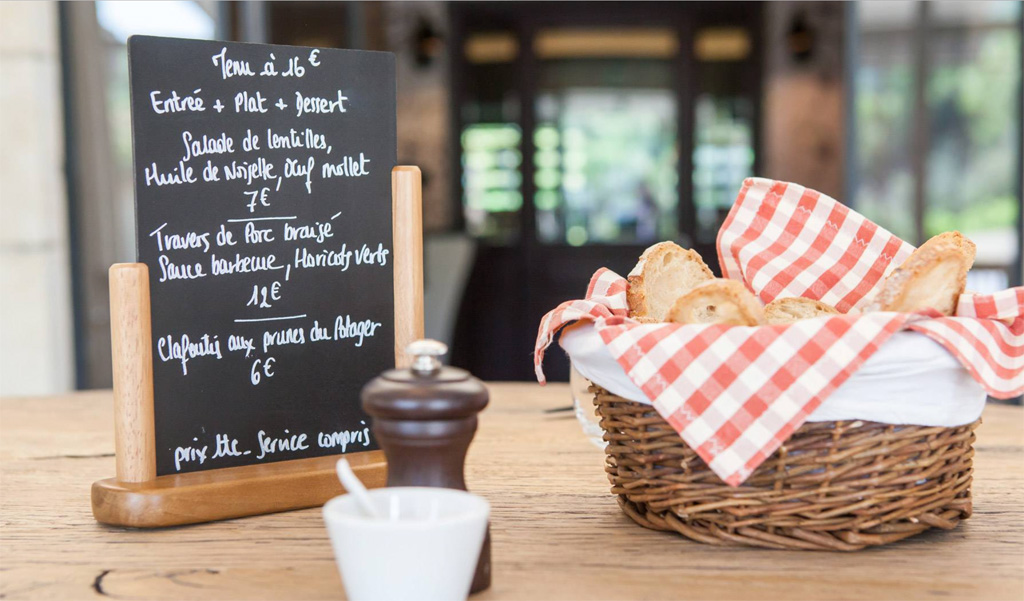 Menu à 16€
Entrée + Plat + Dessert
Salade de lentilles,
Huile de Noisette, Œuf mollet
7€
Travers de Porc braisé
Sauce barbecue, Haricots verts
12€
Clafoutis aux prunes du Potager
6€
prix ttc_ Service compris